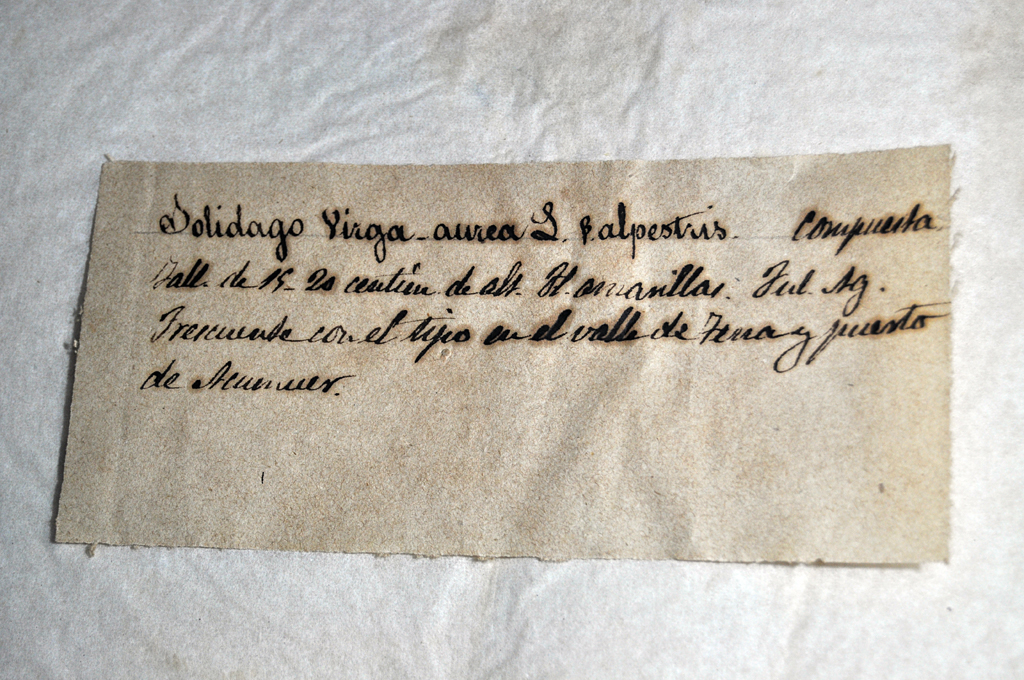 Solidago Virga-aurea L. β alpestris. Compuesta
Tall. de 15-20 centim. de alt. Fl. amarillas. Jul. Ag.
Frecuente con el tipo en el valle de Tena y puerto
de Acumuer.